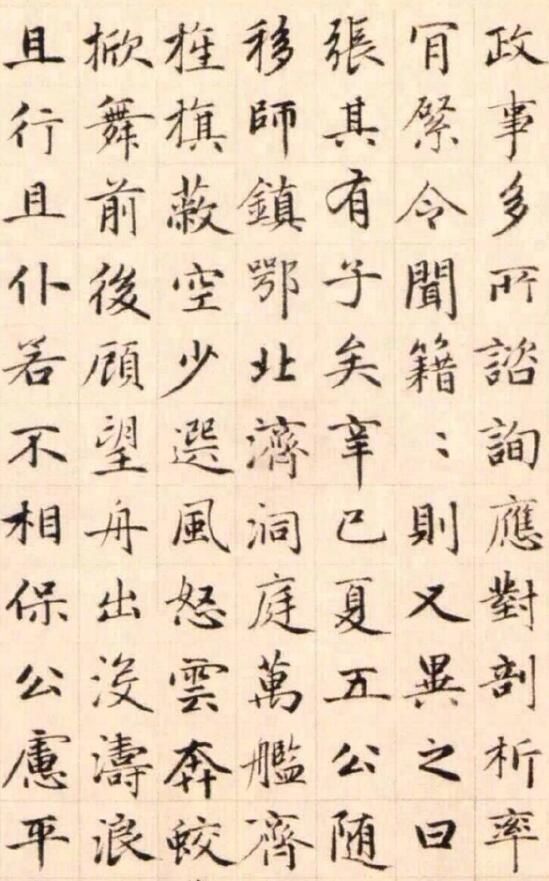 政事多所諮詢應對剖析率
冐緊令聞籍〻則又異之曰
張其有子矣辛巳夏五公随
移師鎮鄂北濟洞庭萬艦齊
旌旗蔽空少選風怒雲奔蛟
掀舞前後顧望舟出没濤浪
且行且仆若不相保公慮平